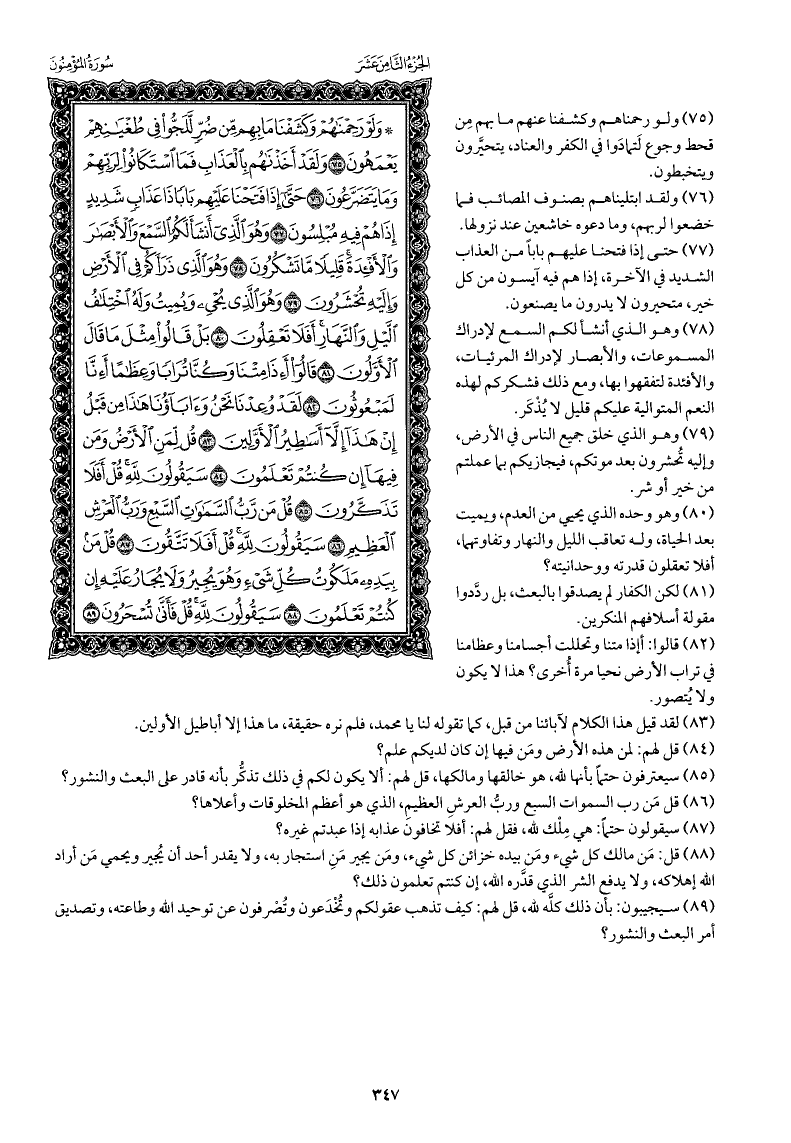 الجزء الثامن عشر
سورة المؤمنون
* وَلَوْ رَحِمْنَٰهُمْ وَكَشَفْنَا مَا بِهِم مِّن ضُرٍّ لَّلَجُّوا۟ فِى طُغْيَٰنِهِمْ
يَعْمَهُونَ ٧٥ وَلَقَدْ أَخَذْنَٰهُم بِٱلْعَذَابِ فَمَا ٱسْتَكَانُوا۟ لِرَبِّهِمْ
وَمَا يَتَضَرَّعُونَ ٧٦ حَتَّىٰٓ إِذَا فَتَحْنَا عَلَيْهِم بَابًا ذَا عَذَابٍ شَدِيدٍ
إِذَا هُمْ فِيهِ مُبْلِسُونَ ٧٧ وَهُوَ ٱلَّذِىٓ أَنشَأَ لَكُمُ ٱلسَّمْعَ وَٱلْأَبْصَٰرَ
وَٱلْأَفْـِٔدَةَ ۚ قَلِيلًا مَّا تَشْكُرُونَ ٧٨ وَهُوَ ٱلَّذِى ذَرَأَكُمْ فِى ٱلْأَرْضِ
وَإِلَيْهِ تُحْشَرُونَ ٧٩ وَهُوَ ٱلَّذِى يُحْىِۦ وَيُمِيتُ وَلَهُ ٱخْتِلَٰفُ
ٱلَّيْلِ وَٱلنَّهَارِ ۚ أَفَلَا تَعْقِلُونَ ٨٠ بَلْ قَالُوا۟ مِثْلَ مَا قَالَ
ٱلْأَوَّلُونَ ٨١ قَالُوٓا۟ أَءِذَا مِتْنَا وَكُنَّا تُرَابًا وَعِظَٰمًا أَءِنَّا
لَمَبْعُوثُونَ ٨٢ لَقَدْ وُعِدْنَا نَحْنُ وَءَابَآؤُنَا هَٰذَا مِن قَبْلُ
إِنْ هَٰذَآ إِلَّآ أَسَٰطِيرُ ٱلْأَوَّلِينَ ٨٣ قُل لِّمَنِ ٱلْأَرْضُ وَمَن
فِيهَآ إِن كُنتُمْ تَعْلَمُونَ ٨٤ سَيَقُولُونَ لِلَّهِ ۚ قُلْ أَفَلَا
تَذَكَّرُونَ ٨٥ قُلْ مَن رَّبُّ ٱلسَّمَٰوَٰتِ ٱلسَّبْعِ وَرَبُّ ٱلْعَرْشِ
ٱلْعَظِيمِ ٨٦ سَيَقُولُونَ لِلَّهِ ۚ قُلْ أَفَلَا تَتَّقُونَ ٨٧ قُلْ مَنۢ
بِيَدِهِۦ مَلَكُوتُ كُلِّ شَىْءٍ وَهُوَ يُجِيرُ وَلَا يُجَارُ عَلَيْهِ إِن
كُنتُمْ تَعْلَمُونَ ٨٨ سَيَقُولُونَ لِلَّهِ ۚ قُلْ فَأَنَّىٰ تُسْحَرُونَ ٨٩
(٧٥) ولو رحمناهم وكشفنا عنهم ما بهم مِن
قحط وجوع لَتمادَوا في الكفر والعناد، يتحيَّرون
ويتخبطون.
(٧٦) ولقد ابتليناهم بصنوف المصائب فما
خضعوا لربهم، وما دعوه خاشعين عند نزولها.
(٧٧) حتى إذا فتحنا عليهم باباً من العذاب
الشديد في الآخرة، إذا هم فيه آيسون من كل
خير، متحيرون لا يدرون ما يصنعون.
(٧٨) وهو الذي أنشأ لكم السمع لإدراك
المسموعات، والأبصار لإدراك المرئيات،
والأفئدة لتفقهوا بها، ومع ذلك فشكركم لهذه
النعم المتوالية عليكم قليل لا يُذْكَر.
(٧٩) وهو الذي خلق جميع الناس في الأرض،
وإليه تُحشرون بعد موتكم، فيجازيكم بما عملتم
من خير أو شر.
(٨٠) وهو وحده الذي يحيي من العدم، ويميت
بعد الحياة، وله تعاقب الليل والنهار وتفاوتهما،
أفلا تعقلون قدرته ووحدانيته؟
(٨١) لكن الكفار لم يصدقوا بالبعث، بل ردَّدوا
مقولة أسلافهم المنكرين.
(٨٢) قالوا: أإذا متنا وتحللت أجسامنا وعظامنا
في تراب الأرض نحيا مرة أُخرى؟ هذا لا يكون
ولا يُتصور.
(٨٣) لقد قيل هذا الكلام لآبائنا من قبل، كما تقوله لنا يا محمد، فلم نره حقيقة، ما هذا إلا أباطيل الأولين.
(٨٤) قل لهم: لمن هذه الأرض ومَن فيها إن كان لديكم علم؟
(٨٥) سيعترفون حتماً بأنها لله، هو خالقها ومالكها، قل لهم: ألا يكون لكم في ذلك تذكُّر بأنه قادر على البعث والنشور؟
(٨٦) قل مَن رب السموات السبع وربُّ العرش العظيم، الذي هو أعظم المخلوقات وأعلاها؟
(٨٧) سيقولون حتماً: هي مِلْك لله، فقل لهم: أفلا تخافون عذابه إذا عبدتم غيره؟
(٨٨) قل: مَن مالك كل شيء ومَن بيده خزائن كل شيء، ومَن يجير مَنِ استجار به، ولا يقدر أحد أن يُجير ويحمي مَن أراد
الله إهلاكه، ولا يدفع الشر الذي قدَّره الله، إن كنتم تعلمون ذلك؟
(٨٩) سيجيبون: بأن ذلك كلَّه لله، قل لهم: كيف تذهب عقولكم وتُخْدَعون وتُصْرفون عن توحيد الله وطاعته، وتصديق
أمر البعث والنشور؟
٣٤٧